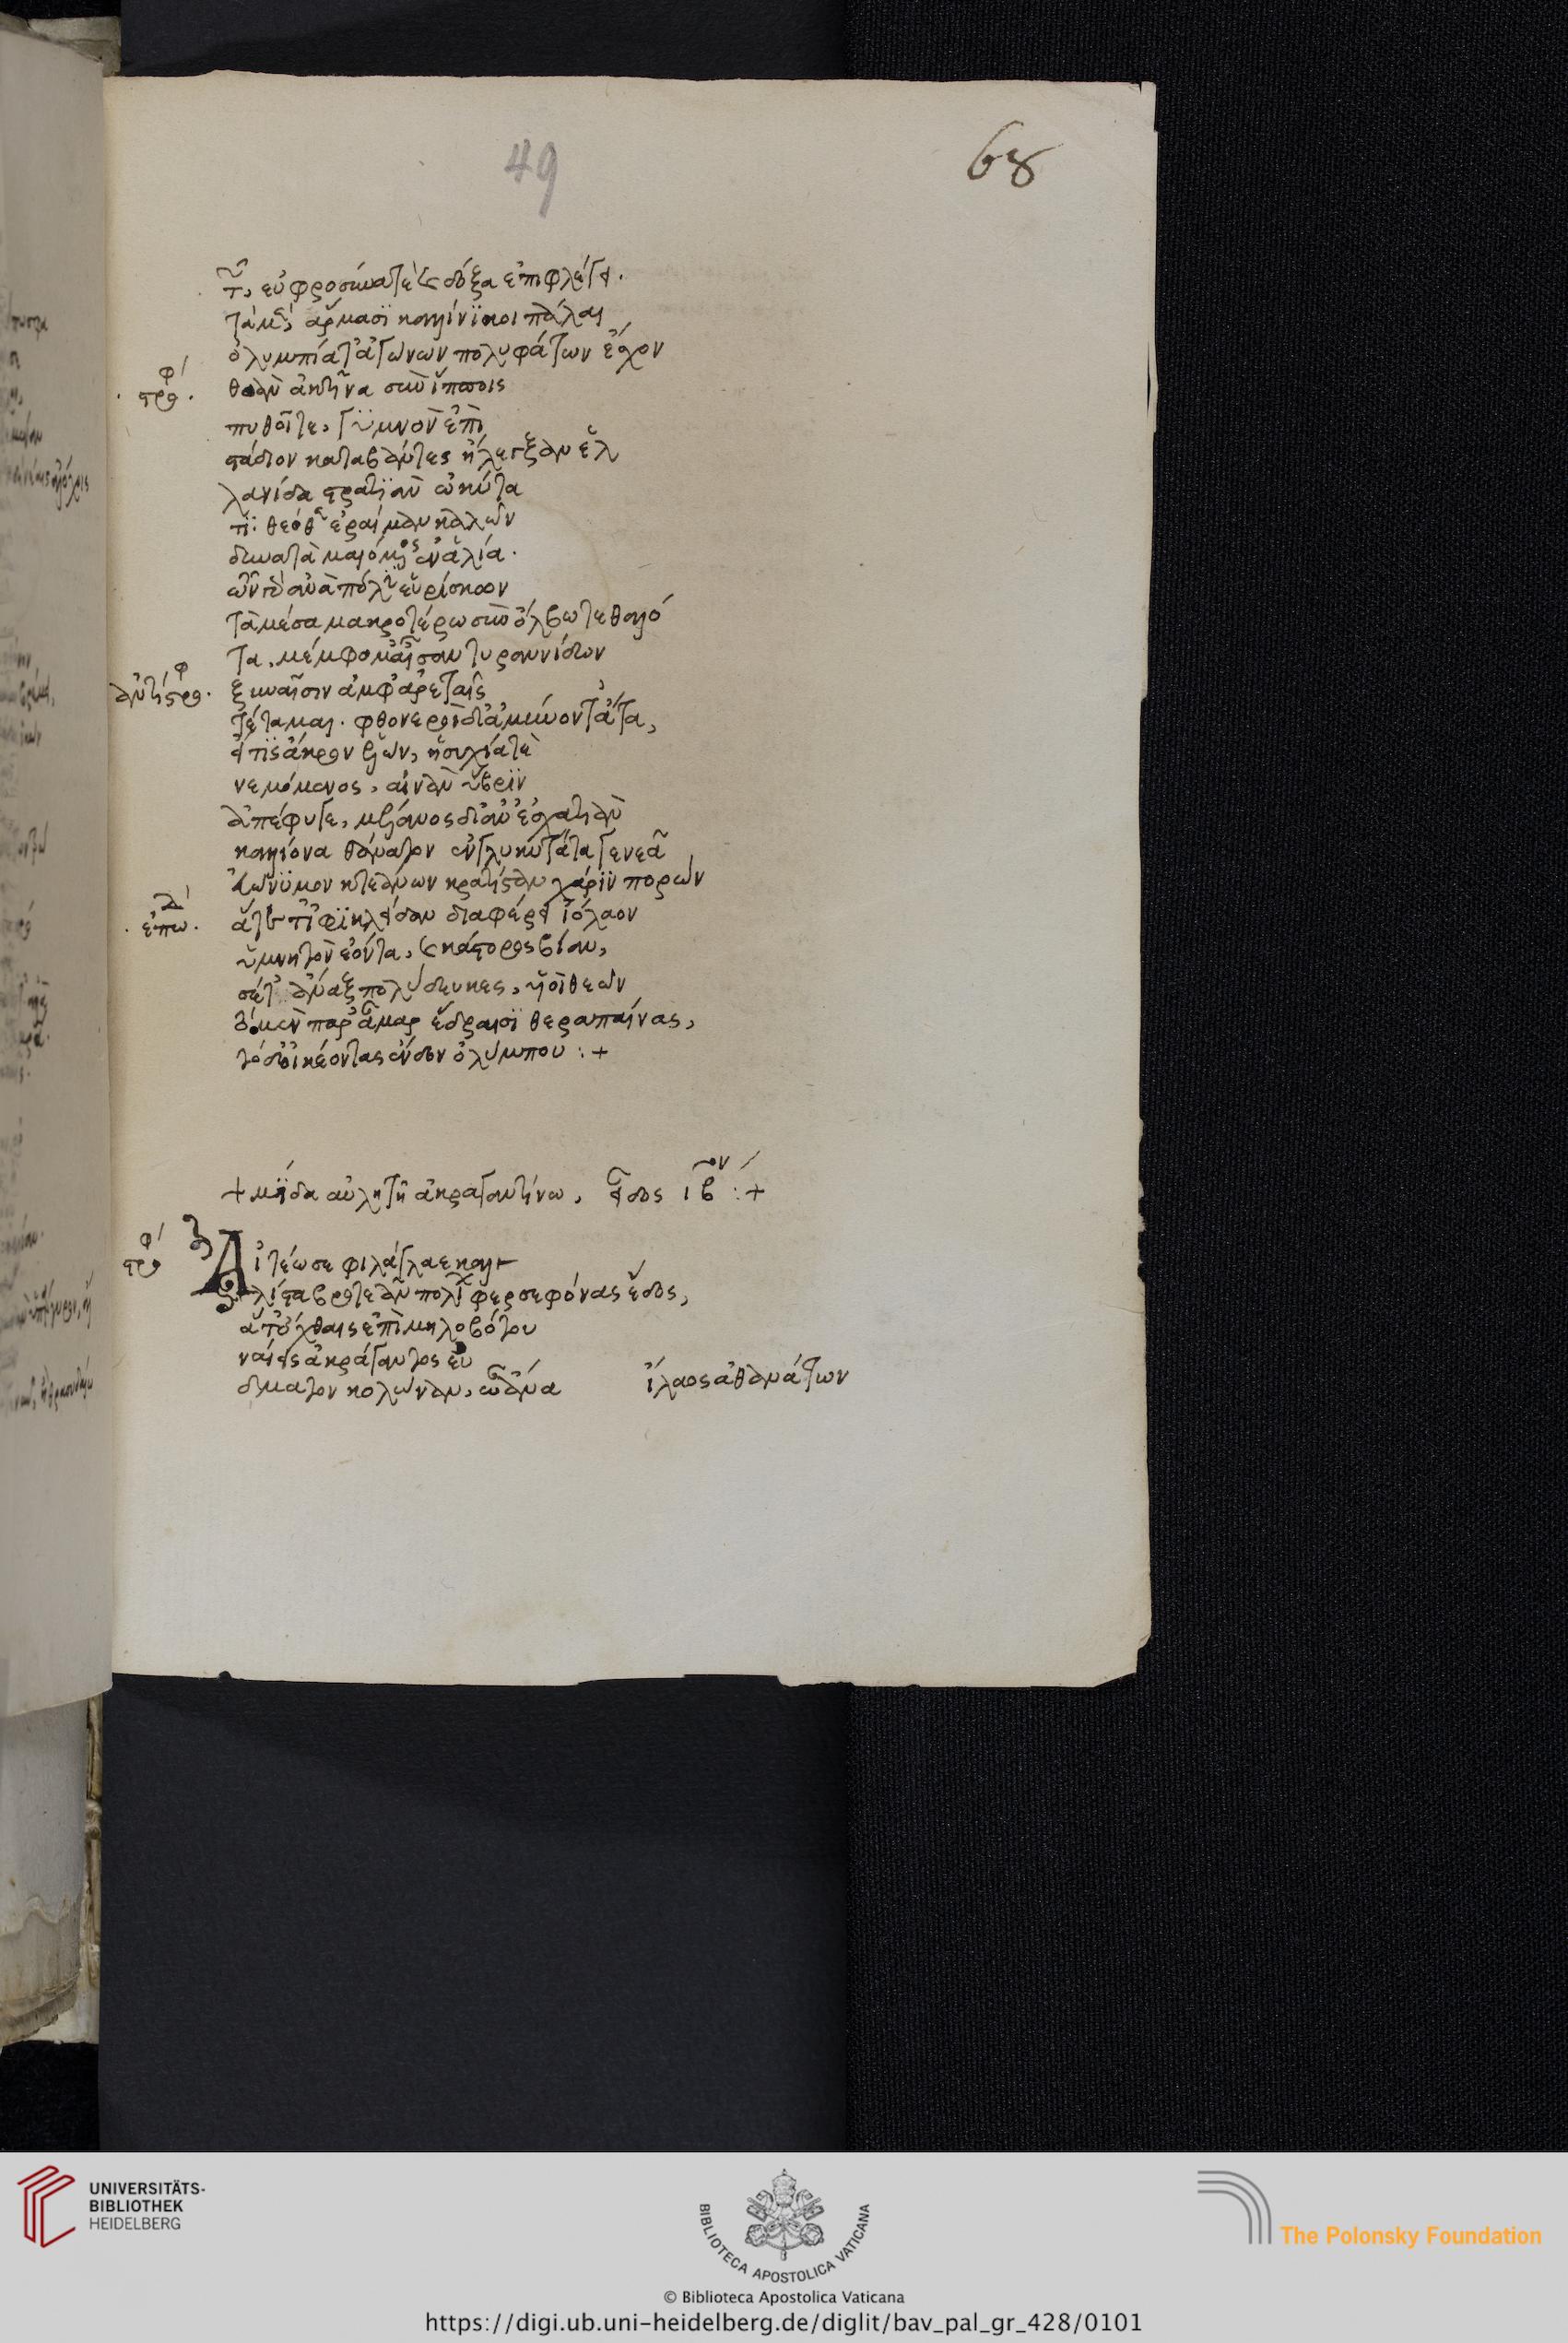 49
68
τῶν, εὐφροσύνα τὲ καὶ δόξα ἐπιφλέγει.
τὰ μὲν ἅρμασϊ καλλίνϊκοι πάλαι
ὀλυμπίατ' ἀγώνων πολυφάτων ἔσχον
στρο φ' θοὰν ἀκτῖνα σὺν ἵπποις
πυθοῖτε, γϋμνὸν ἐπὶ
στάδιον καταβάντες ἤλεγξαν ἑλ
λανίδα στρατϊὰν ὠκύτα
τϊ: θεόθεν ἐραίμαν καλῶν
δυνατὰ μαιόμενος ἐν ἁλϊκία.
τῶν γὰρ ἀνὰ πόλϊν εὑρίσκων
τὰ μέσα μακροτέρω σὺν ὄλβω τεθαλό
τα, μέμφομ' αἶσαν τυραννίδων
ἀντιστρο φ ξυναῖσιν ἀμφ' ἀρεταῖς
τέταμαι. φθονεροὶ δ' ἀμύνοντ' ἄτα,
εἴ τϊς ἄκρον ἑλὼν, ἡσυχία τὲ
νεμόμενος, αἰνὰν ὕβρϊν
ἀπέφυγε, μέλανος δ' ἂν ἐσχατιὰν
καλλίονα θάνατον ἐν γλυκυτάτα γενεᾶ
εὐώνϋμον κτεάνων κρατίσταν χάρϊν πορών
ἐπω δ' ἅτε τὸν ἰφϊκλείδαν διαφέρει ἰόλαον
ὑμνητὸν ἐόντα, καὶ κάστορος βίαν,
σέτ' ἄναξ πολύδευκες, υἱοὶ θεῶν
τὸ μὲν παρ' ἆμαρ ἕδραισϊ θεράπναις,
τὸ δ' οἰκέοντας ἔνδον ὀλύμπου : +
+ μΐδα αὐλητῆ ἀκραγαντίνω, εἶδος ιβον : +
στρο φ' Αἰτέω σε φιλάγλαε καλ
λίστα βροτεᾶν πολίων φερσεφόνας ἕδος,
ἅτ' ὄχθαις ἐπὶ μηλοβότου
ναίεις ἀκράγαντος ἐΰ
δματον κολώναν, ὦ ἄνα ἵλαος ἀθανάτων
UNIVERSITÄTS-
BIBLIOTHEK
HEIDELBERG
BIBLIOTECA APOSTOLICA VATICANA
The Polonsky Foundation
© Biblioteca Apostolica Vaticana
https://digi.ub.uni-heidelberg.de/diglit/bav_pal_gr_428/0101